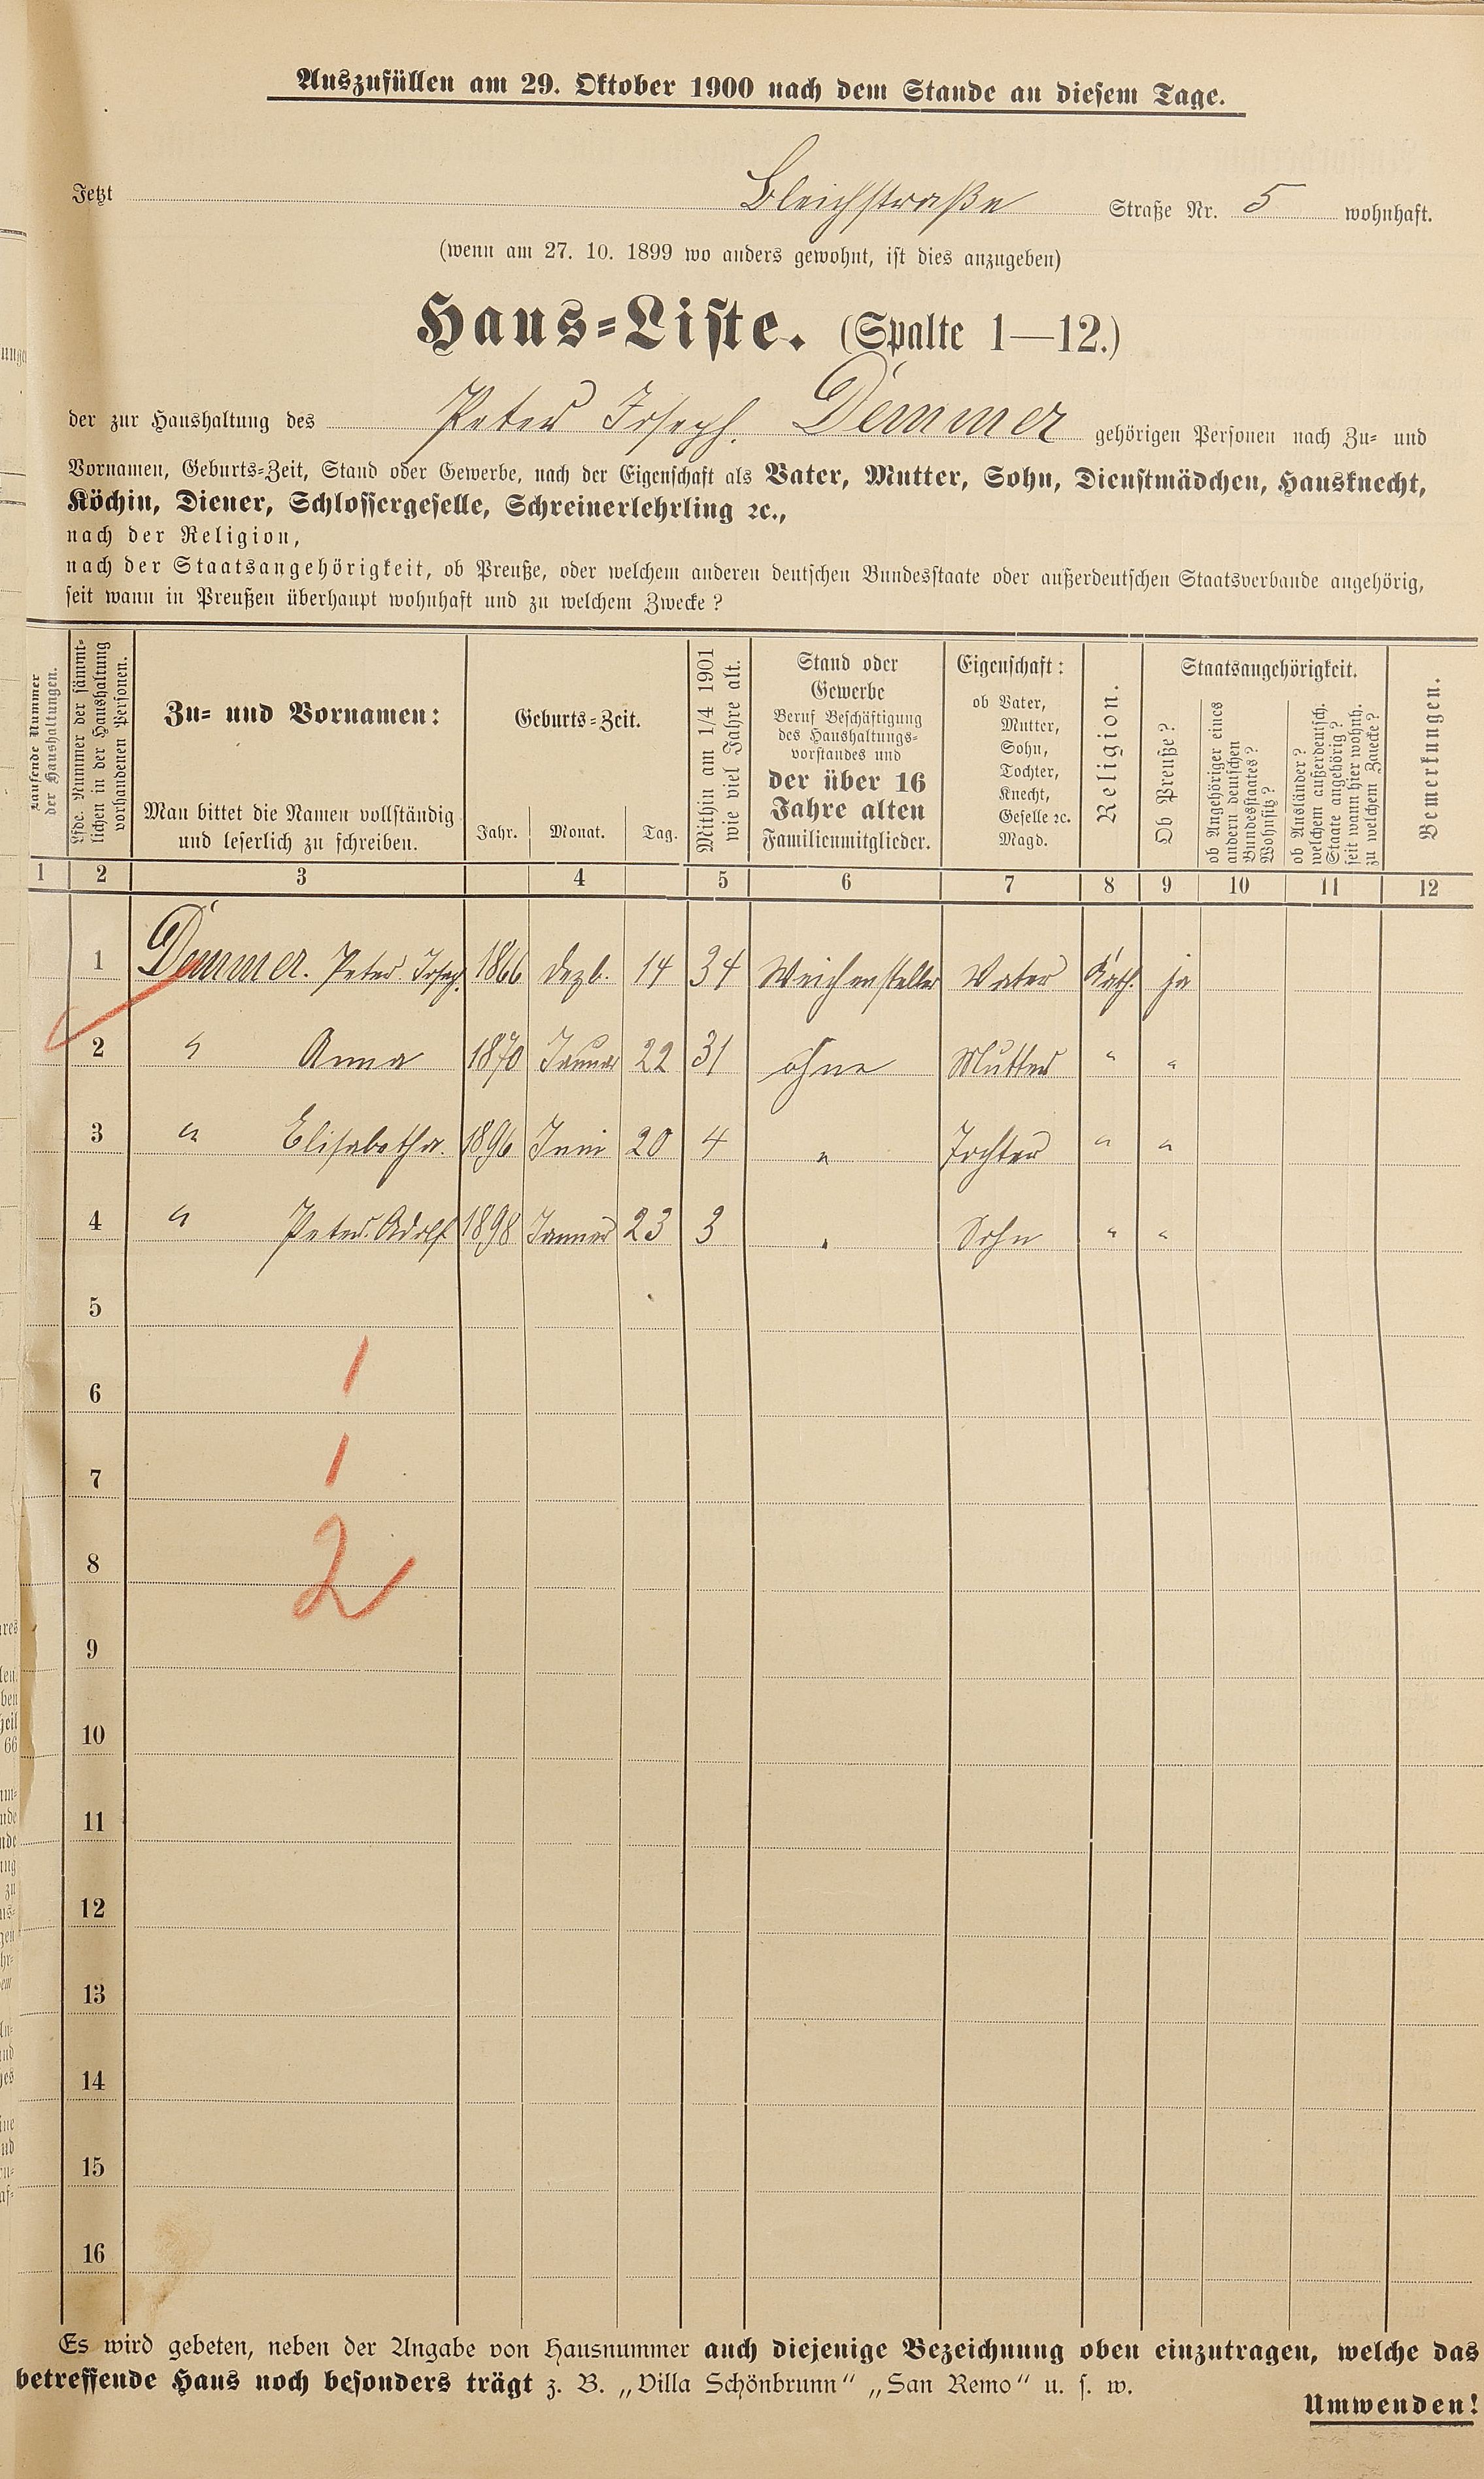 Auszufüllen am 29. Oktober 1900 nach dem Stande an diesem Tage.
Jetzt Bleichstraße Straße Nr. 5 wohnhaft.
(wenn am 27. 10. 1899 wo anders gewohnt, ist dies anzugeben)
Haus-Liste. (Spalte 1—12.)
der zur Haushaltung des Peter Joseph. Demmer gehörigen Personen nach Zu- und
Vornamen, Geburts-Zeit, Stand oder Gewerbe, nach der Eigenschaft als Vater, Mutter, Sohn, Dienstmädchen, Hausknecht,
Köchin, Diener, Schlossergeselle, Schreinerlehrling ꝛc.,
nach der Religion,
nach der Staatsangehörigkeit, ob Preuße, oder welchem anderen deutschen Bundesstaate oder außerdeutschen Staatsverbande angehörig,
seit wann in Preußen überhaupt wohnhaft und zu welchem Zwecke?
Laufende Nummer
der Haushaltungen.
Lfde. Nummer der sämmt-
lichen in der Haushaltung
vorhandenen Personen.
Zu- und Vornamen:
Man bittet die Namen vollständig
und leserlich zu schreiben.
Geburts-Zeit.
Jahr. Monat. Tag.
Mithin am 1/4 1901
wie viel Jahre alt.
Stand oder
Gewerbe
Beruf Beschäftigung
des Haushaltungs-
vorstandes und
der über 16
Jahre alten
Familienmitglieder.
Eigenschaft:
ob Vater,
Mutter,
Sohn,
Tochter,
Knecht,
Geselle ꝛc.
Magd.
Religion.
Staatsangehörigkeit.
Ob Preuße?
ob Angehöriger eines
andern deutschen
Bundesstaates?
Wohnsitz?
ob Ausländer?
welchem außerdeutsch.
Staate angehörig?
seit wann hier wohnh.
zu welchem Zwecke?
Bemerkungen.
1 2 3 4 5 6 7 8 9 10 11 12
1 Demmer. Peter Joseph. 1866 Dezb. 14 34 Weichensteller Vater Kath. ja
2 " Anna 1870 Januar 22 31 ohne Mutter " "
3 " Elisabetha. 1896 Juni 20 4 " Tochter " "
4 " Peter. Adolf 1898 Januar 23 3 " Sohn " "
5
6 1
7 1
8 2
9
10
11
12
13
14
15
16
Es wird gebeten, neben der Angabe von Hausnummer auch diejenige Bezeichnung oben einzutragen, welche das
betreffende Haus noch besonders trägt z. B. „Villa Schönbrunn“ „San Remo“ u. s. w.
Umwenden!